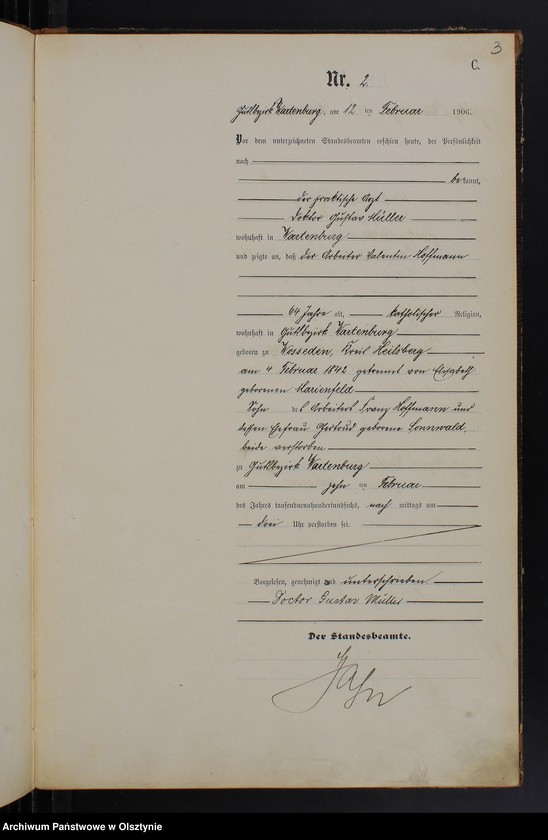 3
C.
Nr. 2
Gutsbezirk Wartenburg, am 12 ten Februar 1906.
Vor dem unterzeichneten Standesbeamten erschien heute, der Persönlichkeit
nach
bekannt,
der praktische Arzt
Doktor Gustav Müller
wohnhaft in Wartenburg
und zeigte an, daß der Arbeiter Valentin Hoffmann
64 Jahre alt, katholischer Religion,
wohnhaft in Gutsbezirk Wartenburg
geboren zu Kreis Heilsberg
am 4 Februar 1842 getrennt von Elisabeth
geborenen Marienfeld
Sohn des Arbeiters Franz Hoffmann und
dessen Ehefrau Gertrud geborene Sonnwald,
beide verstorben
zu Gutsbezirk Wartenburg
am zehn ten Februar
des Jahres tausendneunhundertundsechs, nach mittags um
drei Uhr verstorben sei.
Vorgelesen, genehmigt und unterschrieben
Doctor Gustav Müller
Der Standesbeamte.
Archiwum Państwowe w Olsztynie